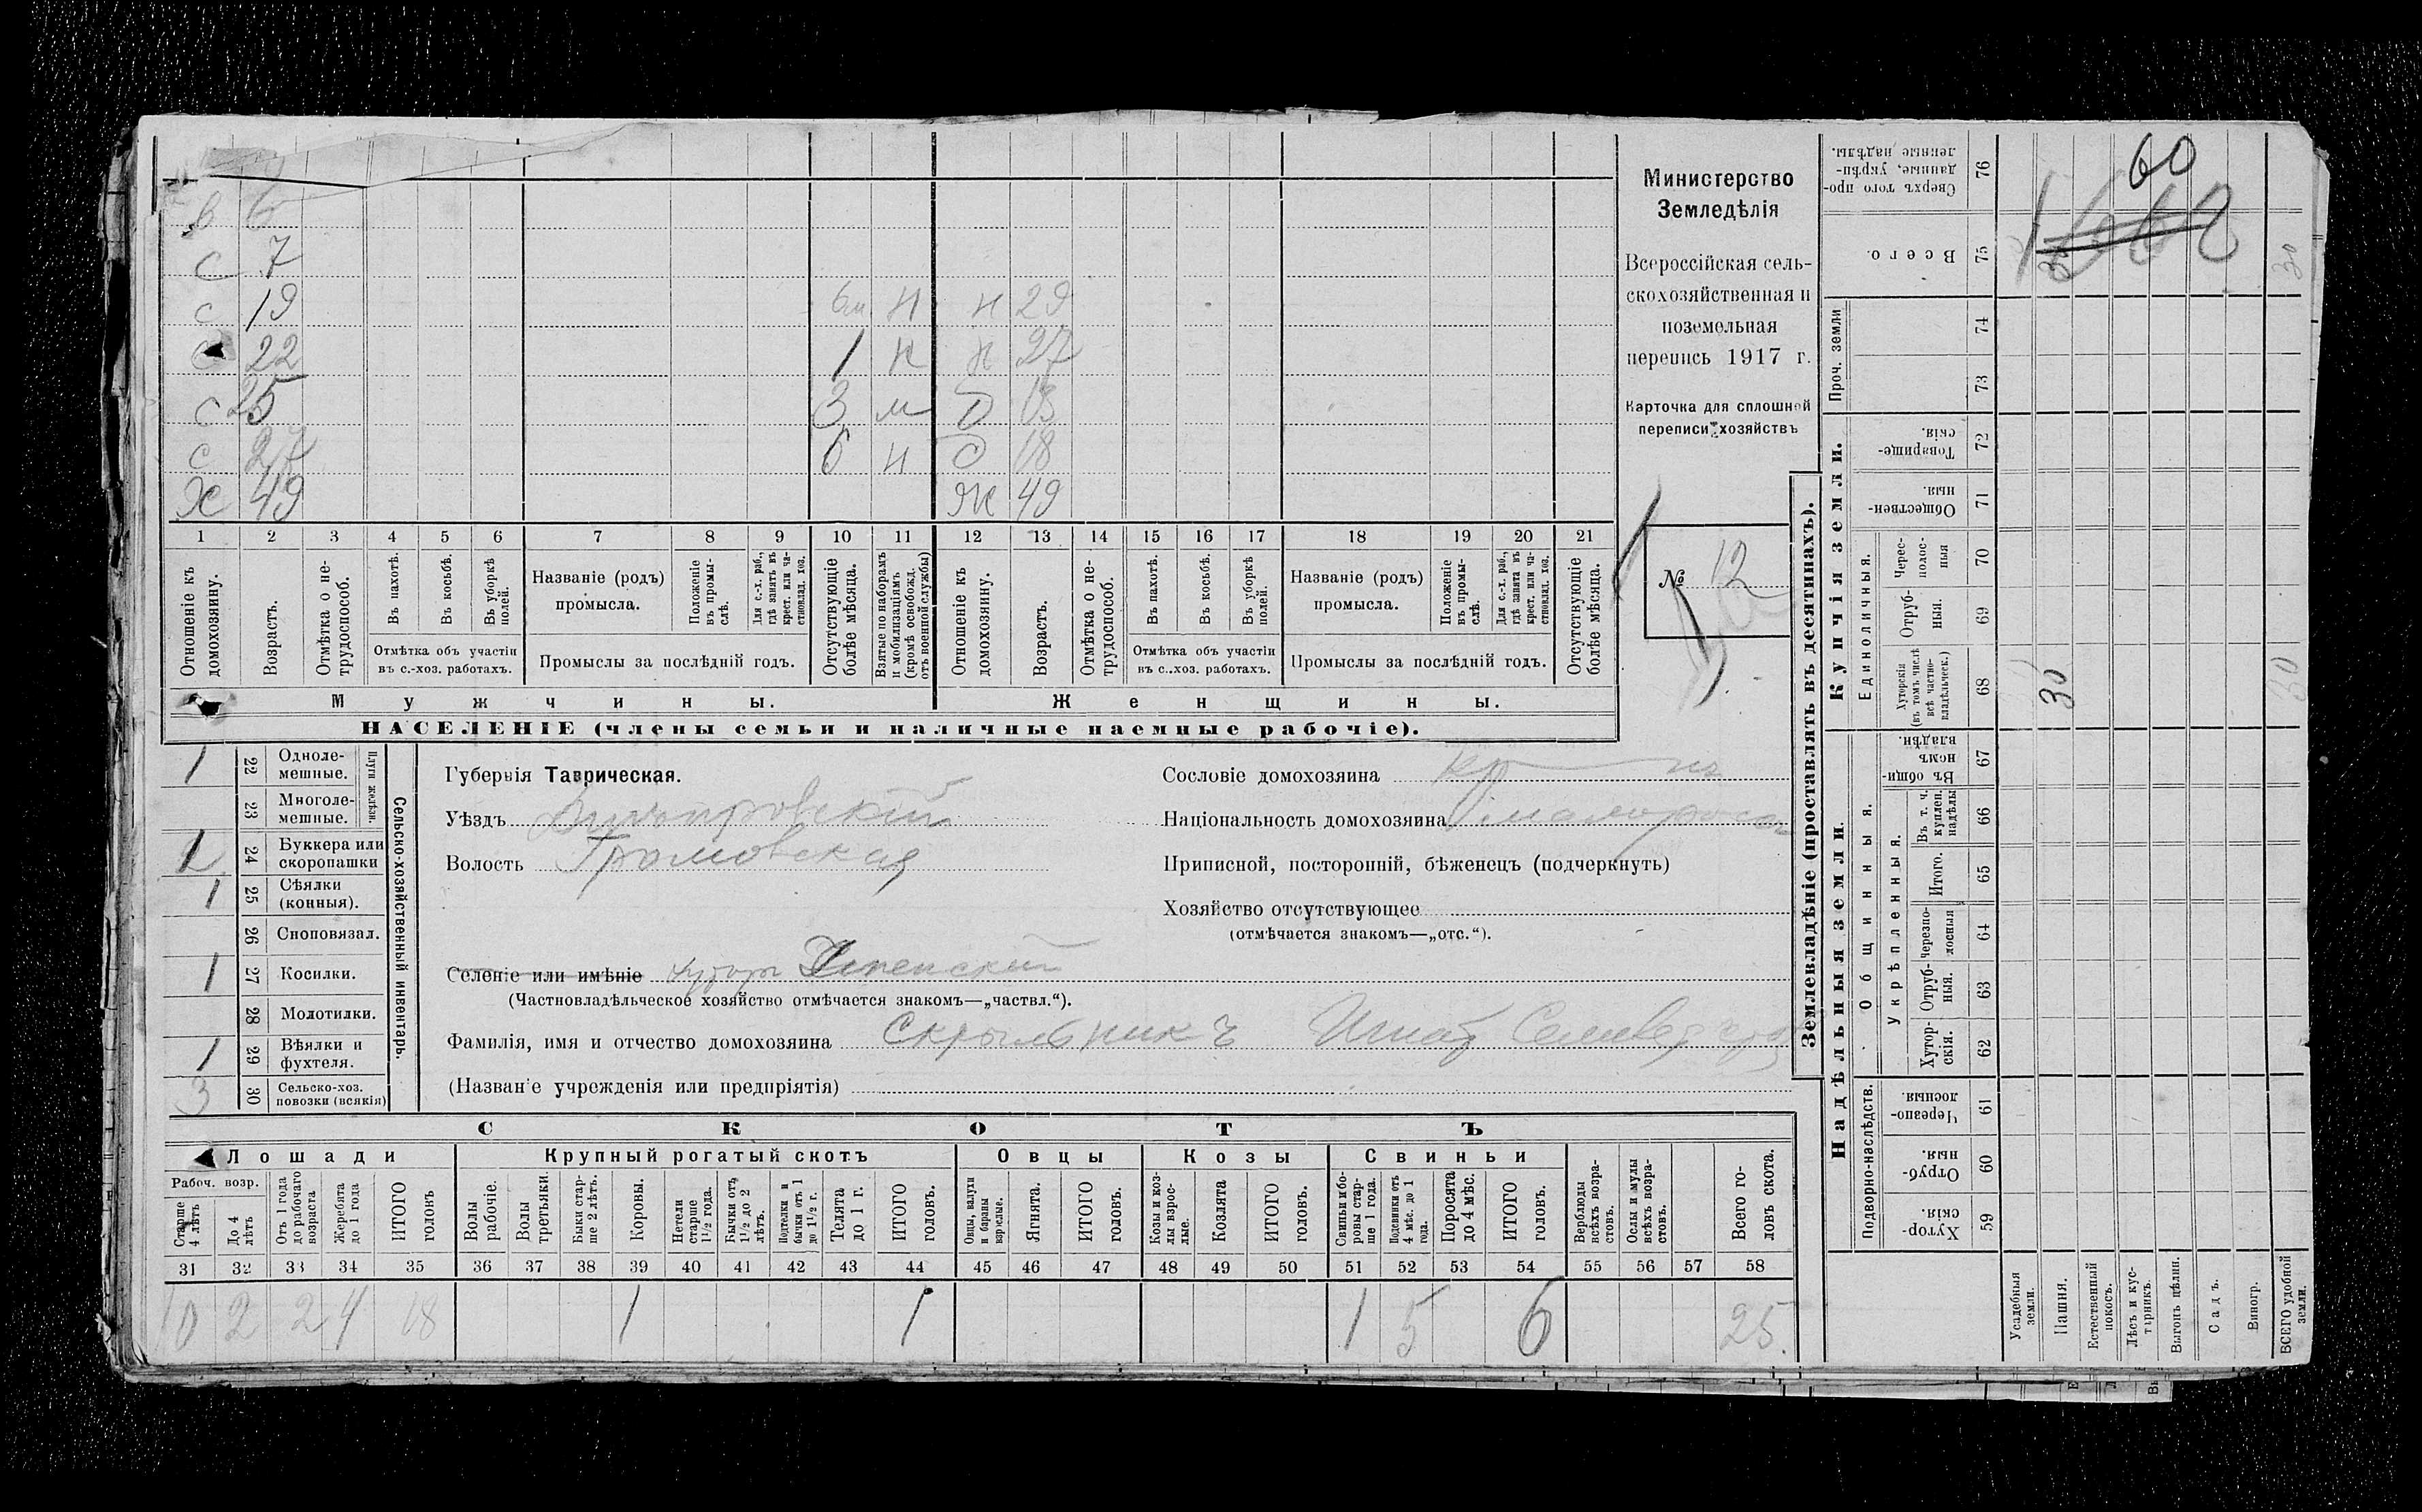 в 6
с 7
с 19 6м. н н 29
с 22 1 н н 27
с 25 3 м
с 27 6 н 18
Х 49 Ж 49
1 2 3 4 5 6 7 8 9 10 11 12 13 14 15 16 17 18 19 20 21
Отношеніе къ домохозяину.
Возрастъ.
Отмѣтка о нетрудоспособ.
Въ пахотѣ.
Въ косьбѣ.
Въ уборкѣ полей.
Отмѣтка объ участіи въ с.-хоз. работахъ.
Названіе (родъ) промысла.
Положеніе въ промыслѣ.
Для с.-х. раб., гдѣ занятъ въ крест. или частновлад. хоз.
Промыслы за послѣдній годъ.
Отсутствующіе болѣе мѣсяца.
Взятые по наборамъ и мобилизаціямъ (кромѣ освобожд. отъ военной службы)
Отношеніе къ домохозяину.
Возрастъ.
Отмѣтка о нетрудоспособ.
Въ пахотѣ.
Въ косьбѣ.
Въ уборкѣ полей.
Отмѣтка объ участіи въ с.-хоз. работахъ.
Названіе (родъ) промысла.
Положеніе въ промыслѣ.
Для с.-х. раб., гдѣ занята въ крест. или частновлад. хоз.
Промыслы за послѣдній годъ.
Отсутствующіе болѣе мѣсяца.
Мужчины. Женщины.
НАСЕЛЕНІЕ (члены семьи и наличные наемные рабочіе).
Министерство
Земледѣлія
Всероссійская сель-
скохозяйственная и
поземельная
перепись 1917 г.
Карточка для сплошной
переписи хозяйствъ
№ 12
Сельско-хозяйственный инвентарь.
Плуги желѣзн.
1 22 Одноле-
мешные.
23 Многоле-
мешные.
24 Буккера или
скоропашки
1 25 Сѣялки
(конныя).
26 Сноповязал.
1 27 Косилки.
28 Молотилки.
1 29 Вѣялки и
фухтеля.
3 30 Сельско-хоз.
повозки (всякія)
Губернія Таврическая.
Уѣздъ Днѣпровскій
Волость Громовская
Селеніе или имѣніе хуторъ Успенскій
(Частновладѣльческое хозяйство отмѣчается знакомъ—„частвл.“).
Фамилія, имя и отчество домохозяина Скрыльникъ Игнатъ
(Названіе учрежденія или предпріятія)
Сословіе домохозяина кр—нъ
Національность домохозяина малороссъ
Приписной, посторонній, бѣженецъ (подчеркнуть)
Хозяйство отсутствующее
(отмѣчается знакомъ—„отс.“).
СКОТЪ
Лошади Крупный рогатый скотъ Овцы Козы Свиньи
Рабоч. возр.
Старше 4 лѣтъ
До 4 лѣтъ
Отъ 1 года до рабочаго возраста
Жеребята до 1 года
ИТОГО головъ
Волы рабочіе.
Волы третьяки.
Быки старше 2 лѣтъ.
Коровы.
Нетели старше 1½ года.
Бычки отъ 1½ до 2 лѣтъ.
Подтелки и бычки отъ 1 до 1½ г.
Телята до 1 г.
ИТОГО головъ.
Овцы, валухи и бараны взрослые.
Ягнята.
ИТОГО головъ.
Козы и козлы взрослые.
Козлята
ИТОГО головъ.
Свиньи и боровы старше 1 года.
Подсвинки отъ 4 мѣс. до 1 года.
Поросята до 4 мѣс.
ИТОГО головъ.
Верблюды всѣхъ возрастовъ.
Ослы и мулы всѣхъ возрастовъ.
Всего головъ скота.
31 32 33 34 35 36 37 38 39 40 41 42 43 44 45 46 47 48 49 50 51 52 53 54 55 56 57 58
10 2 2 4 18 1 1 1 5 6 25.
Землевладѣніе (проставлять въ десятинахъ).
Надѣльныя земли.
Купчія земли.
Подворно-наслѣдств.
Общинныя.
Укрѣпленныя.
Единоличныя.
Проч. земли
Хуторскія. 59
Отрубныя. 60
Черезполосныя 61
Хуторскія. 62
Отрубныя. 63
Черезполосныя 64
Итого. 65
Въ т. ч. куплен. надѣлы 66
Въ общинномъ владѣн. 67
Хуторскія (въ томъ числѣ всѣ частновладѣльческ.) 68
Отрубныя. 69
Чересполосныя 70
Общественныя. 71
Товарищескія. 72
73
74
Всего. 75
Сверхъ того проданные, укрѣпленные надѣлы. 76
Усадебныя земли.
Пашня.
Естественный покосъ.
Лѣсъ и кустарникъ.
Выгонъ цѣлин.
Садъ.
Виногр.
ВСЕГО удобной земли.
60
30
30
30
30